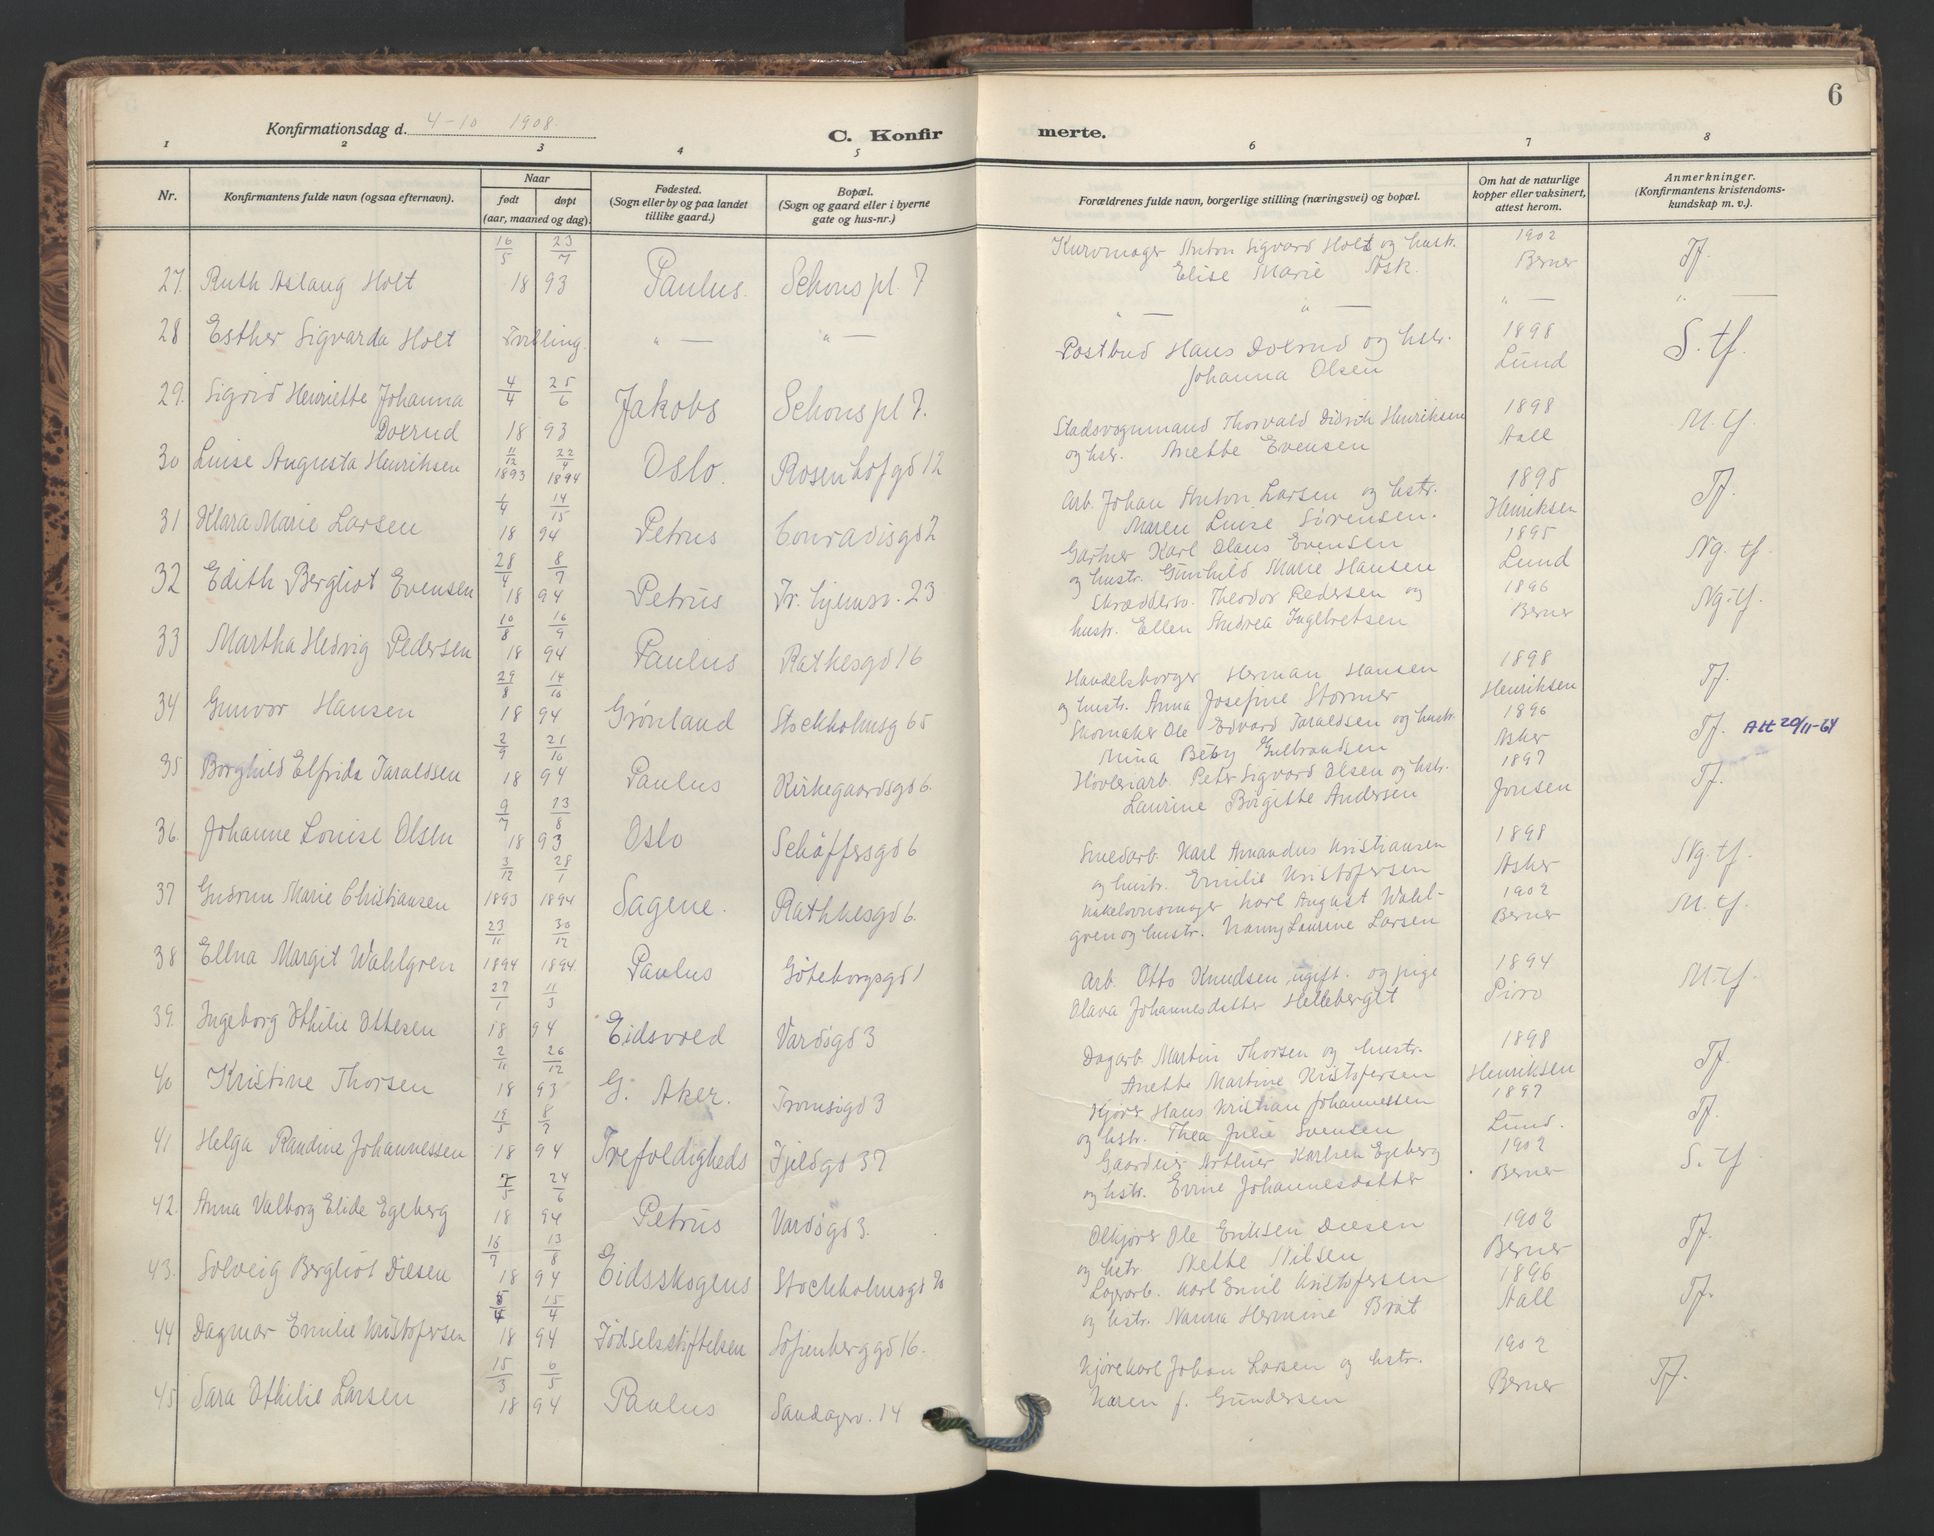 6
Konfirmationsdag d. 4-10 1908.
C. Konfir
merte.
1 2 3 4 5 6 7 8
Nr.
Konfirmantens fulde navn (ogsaa efternavn).
Naar
født døpt
(aar, maaned og dag).
Fødested.
(Sogn eller by og paa landet
tillike gaard.)
Bopæl.
(Sogn og gaard eller i byerne
gate og hus-nr.)
Forældrenes fulde navn, borgerlige stilling (næringsvei) og bopæl.
Om hat de naturlige
kopper eller vaksinert,
attest herom.
Anmerkninger.
(Konfirmantens kristendoms-
kundskap m. v.).
27. Ruth Aslaug Holt 16/5 23/7 1893 Paulus. Schous pl. 7
Kurvmager Anton Sigvard Holt og hustr.
Elise Marie Ask. 1902 Berner Tf.
28 Esther Sigvarda Holt Tvilling. " — " —
" — " — " — " —
29. Sigrid Henriette Johanna
Doxrud 4/4 25/6 1893 Jakobs Schous pl 7.
Postbud Hans Doxrud og hstr.
Johanna Olsen 1898 Lund S. tf.
30 Luise Augusta Henriksen 11/12 1893 22/4 1894 Oslo. Rosenhofgd 12
Stadsvognmand Thorvald Didrik Henriksen
og hstr. Anette Evensen 1898 Aall M. tf.
31 Klara Marie Larsen 1/4 14/15 1894 Petrus Conradisgd 2
Arb. Johan Anton Larsen og hstr.
Maren Luise Sørensen. 1895 Henriksen Tf.
32 Edith Bergliot Evensen 28/4 8/7 1894 Petrus Tr.hjemsv. 23
Gartner Karl Olaus Evensen
og hustr. Gunhild Marie Hansen 1895 Lund Ng. tf.
33 Martha Hedvig Pedersen 10/8 16/9 1894 Paulus Rathesgd 16
Skræddersv. Theodor Pedersen og
hustr. Ellen Andrea Ingebretsen 1896 Berner Ng. tf.
34 Gunvor Hansen 29/8 14/10 1894 Grønland Stockholmsg 65
Handelsborger Herman Hansen
og hustr. Anna Josefine Størmer 1898 Henriksen Tf.
35 Borghild Elfrida Taraldsen 2/9 21/10 1894 Paulus Kirkegaardsgd 6.
Skomaker Ole Edvard Taraldsen og hustr.
Mina Betzy Gulbrandsen 1896 Asker Tf. Att 20/11-64
36. Johanne Louise Olsen 9/7 13/8 1893 Oslo Schäffersgd 6
Høvleriarb. Peter Sigvard Olsen og hstr.
Laurine Birgitte Andersen 1897 Jonsen Tf.
37 Gudrun Marie Christiansen 3/12 1893 28/1 1894 Sagene. Rathkesgd 6.
Smedarb. Karl Amandus Kristiansen
og hustr. Emilie Kristofersen 1898 Asker Ng. tf.
38 Ellna Margit Wahlgren 23/11 1894 30/12 1894. Paulus Göteborgsgd 1
Kakelovnsmager Karl August Wahl-
gren og hustr. Nanny Laurine Larsen 1902 Berner M. tf.
39. Ingeborg Othilie Ottesen 27/1 11/3 1894 Eidsvold Vardøgd 3
Arb. Otto Knudsen ugift. og pige
Olava Johannesdatter Helleberget 1894 Piro M. tf.
40 Kristine Thorsen 2/11 26/12 1893 G. Aker. Tromsøgd 3
Dagarb. Martin Thorsen og hustr.
Anette Martine Kristofersen 1898 Henriksen Tf.
41 Helga Randine Johannessen 19/5 8/7 1894 Trefoldigheds Fjeldgd 37
Kjører Hans Kristian Johannessen
og hstr. Thea Julie Svensen 1897 Lund. Tf.
42. Anna Valborg Elide Egeberg 7/5 24/6 1894 Petrus Vardøgd 3.
Gaardeier Arthur Karlsen Egeberg
og hstr. Evine Johannesdatter 1902 Berner S. tf.
43. Solveig Bergliot Diesen 16/7 13/8 1894 Eidsskogens Stockholmsgd 20
Ølkjører Ole Eriksen Diesen
og hstr. Nette Nilsen 1902 Berner Tf.
44 Dagmar Emilie Kristofersen 5/4 15/4 1894 Fødselsstiftelsen Sofienberggd 16.
Lagerarb. Karl Emil Kristofersen
og hstr. Nanna Hermine Bråt 1896 Aall Tf.
45 Sara Othilie Larsen 15/3 6/5 1894 Paulus Sandagerv. 14
Kjørekarl Johan Larsen og hstr.
Karen f. Gundersen 1902 Berner Tf.